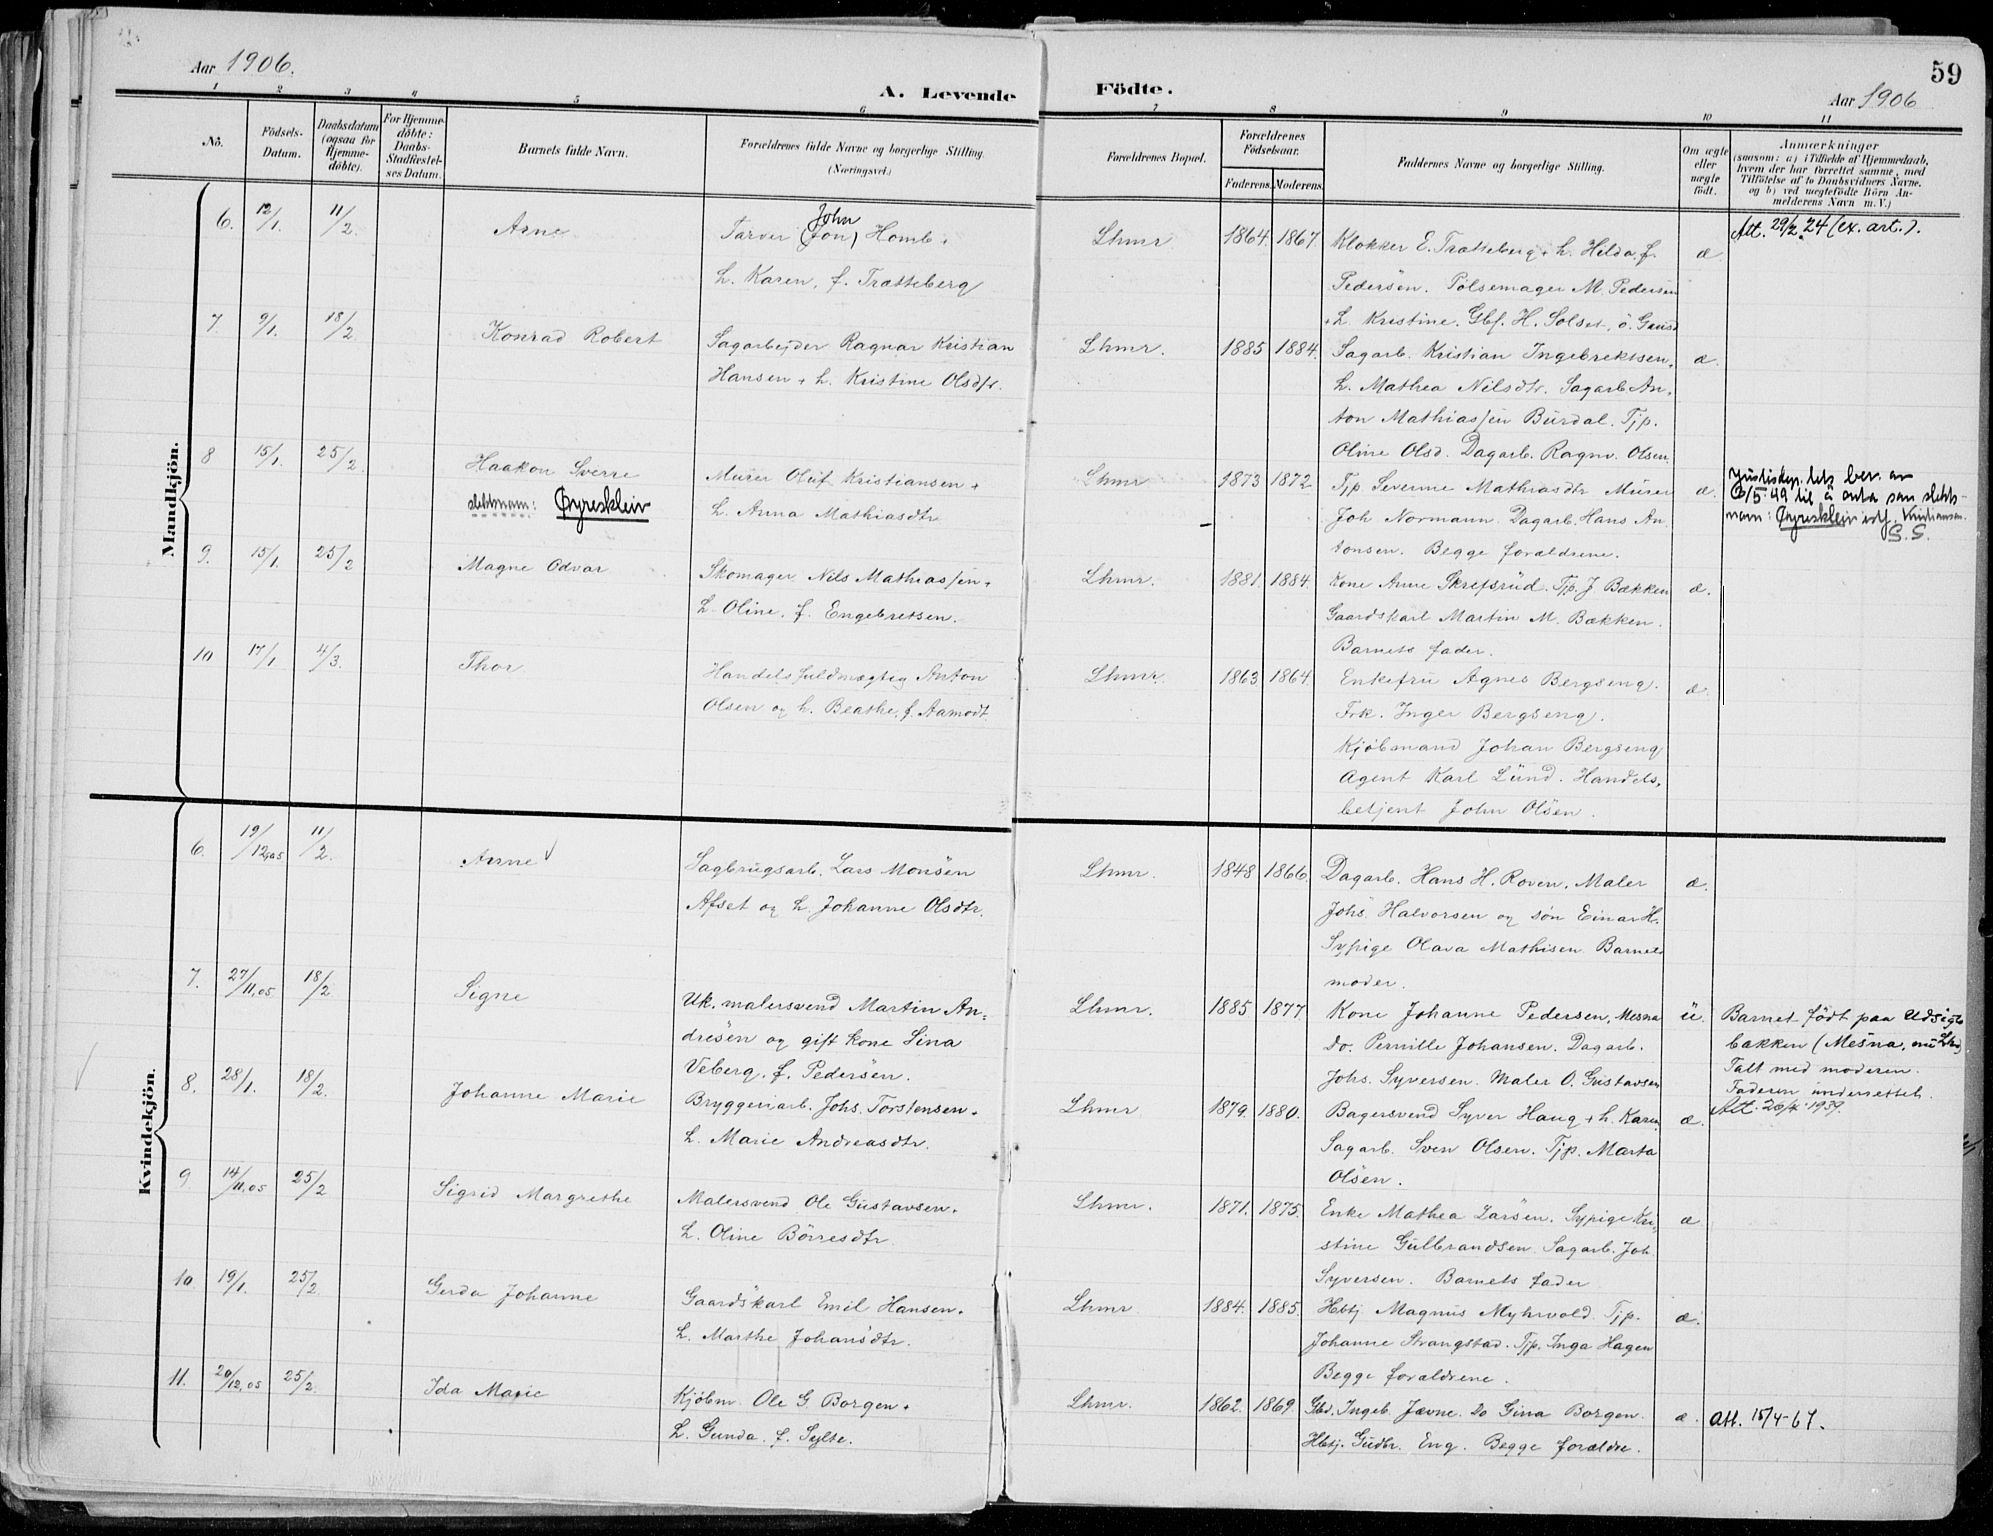 Aar 1906.
A. Levende Födte.
59
Aar 1906
1 2 3 4 5 6 7 8 9 10 11
No.
Födsels-Datum.
Daabsdatum (ogsaa for Hjemme-döbte).
For Hjemme-döbte: Daabs-Stadfæstel-ses Datum.
Barnets fulde Navn.
Forældrenes fulde Navne og borgerlige Stilling.
(Næringsvei.)
Forældrenes Bopæl.
Forældrenes Födselsaar.
Faderens. Moderens.
Faddernes Navne og borgerlige Stilling.
Om ægte eller uægte födt.
Anmærkninger
(saasom: a) i Tilfælde af Hjemmedaab,
hvem der har forrettet samme, med
Tilföielse af to Daabsvidners Navne,
og b) ved uægtefödte Börn An-
melderens Navn m. V.)
Mandkjön.
6. 12/1. 11/2. Arne
John
Farver (Jon) Homb +
h. Karen, f. Trætteberg
Lhmr 1864. 1867.
Klokker E. Trætteberg + h. Hilda f.
Pedersen. Pölsemager M. Pedersen
+ h Kristine. Gbf. H. Solset, ö. Gausd
æ.
Att. 29/2.24 (ex. art.).
7. 9/1. 18/2 Konrad Robert
Sagarbejder Ragnar Kristian
Hansen + h. Kristine Olsdtr.
Lhmr. 1885 1884.
Sagarb. Kristian Ingebrektsen,
h. Mathea Nilsdtr. Sagarb An-
ton Mathiassen Burdal. Tjp.
Oline Olsd. Dagarb. Ragnv. Olsen.
æ.
8 15/1. 25/2. Haakon Sverre
slektsnavn: Øyresklein
Murer Oluf Kristiansen +
h. Anna Mathiasdtr
Lhmr 1873 1872
Tjp Severine Mathiasdtr Murer
Joh Normann. Dagarb. Hans An-
tonsen. Begge forældrene.
æ.
Justisdep.tets bev. av
/5.49 til å anta som slekts-
navn: Øyresklein istf. Kristiansen.
S.S.
9. 15/1. 25/2 Magne Odvar
Skomager Nils Mathiassen +
h. Oline, f. Engebretsen.
Lhmr. 1881. 1884.
Kone Anne Skrefsrud. Tjp. J Bækken
Gaardskarl Martin M. Bækken.
Barnets fader.
æ.
10 17/1 4/3. Thor
Handelsfuldmægtig Anton
Olsen og h. Beathe, f. Aamodt
Lhmr. 1863 1864.
Enkefru Agnes Bergseng.
Frk. Inger Bergseng.
Kjöbmand Johan Bergseng
Agent Karl Lund. Handels-
betjent John Olsen.
æ.
Kvindekjön.
6. 19/12.05 11/2. Anne
Sagbrugsarb. Lars Monsen
Afset og h. Johanne Olsdtr.
Lhmr. 1848 1866.
Dagarb. Hans H. Roven. Maler
Johs Halvorsen og sön Einar H.
Sypige Olava Mathisen Barnets
moder.
æ.
7. 27/11,05 18/2 Signe
Uk. malersvend Martin An-
dresen og gift kone Lina
Veberg, f. Pedersen.
Lhmr. 1885 1877
Kone Johanne Pedersen, Mesna
Do. Pernille Johansen. Dagarb.
Johs. Syversen. Maler O. Gustavsen
u.
Barnet födt paa Udsigt-
bakken (Mesna,
Talt med moderen.
Faderen underrettet.
8. 28/1. 18/2. Johanne Marie
Bryggeriarb. Johs. Torstensen +
h. Marie Andreasdtr.
Lhmr 1879. 1880.
Bagersvend Syver Haug + h. Karen
Sagarb. Sven Olsen. Tjp. Marta
Olsen.
æ.
Att. 20/4 1939.
9 14/11,05 25/2 Sigrid Margrethe
Malersvend Ole Gustavsen +
h. Oline Börresdtr.
Lhmr. 1871. 1875.
Enke Mathea Larsen. Sypige Kri-
stine Gulbrandsen. Sagarb. Joh.
Syversen. Barnets fader
æ
10 19/1. 25/2. Gerda Johanne
Gaardskarl Emil Hansen +
h. Marthe Johansdtr.
Lhmr 1884. 1885.
Hbtj Magnus Myhrvold. Tjp.
Johanne Strangstad. Tjp. Inga Hagen
Begge forældrene.
æ.
11. 20/12,05 25/2. Ida Marie
Kjöbm. Ole G. Borgen +
h. Gunda. f. Sylte.
Lhmr. 1862. 1869.
Gbd. Ingeb. Jævne. Do Gina Borgen.
Hbtj. Gudbr. Eng. Begge forældre.
æ.
Att. 15/4-67.